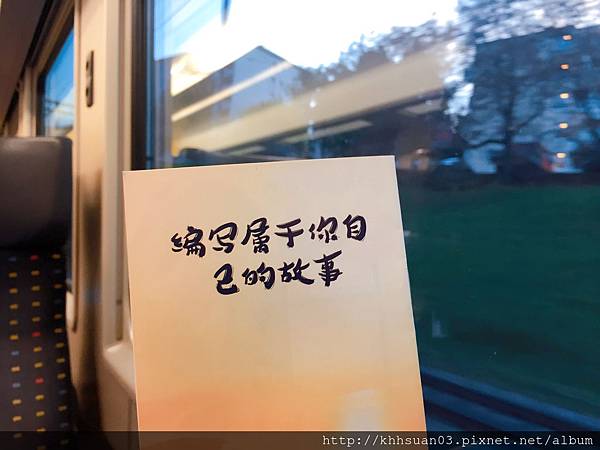 编写属于你自
己的故事
http://khhsuan03.pixnet.net/album